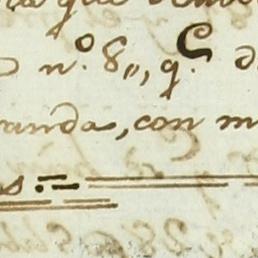 ra que
n.º 8,, q.ᵉ d
randa, con m
s :=